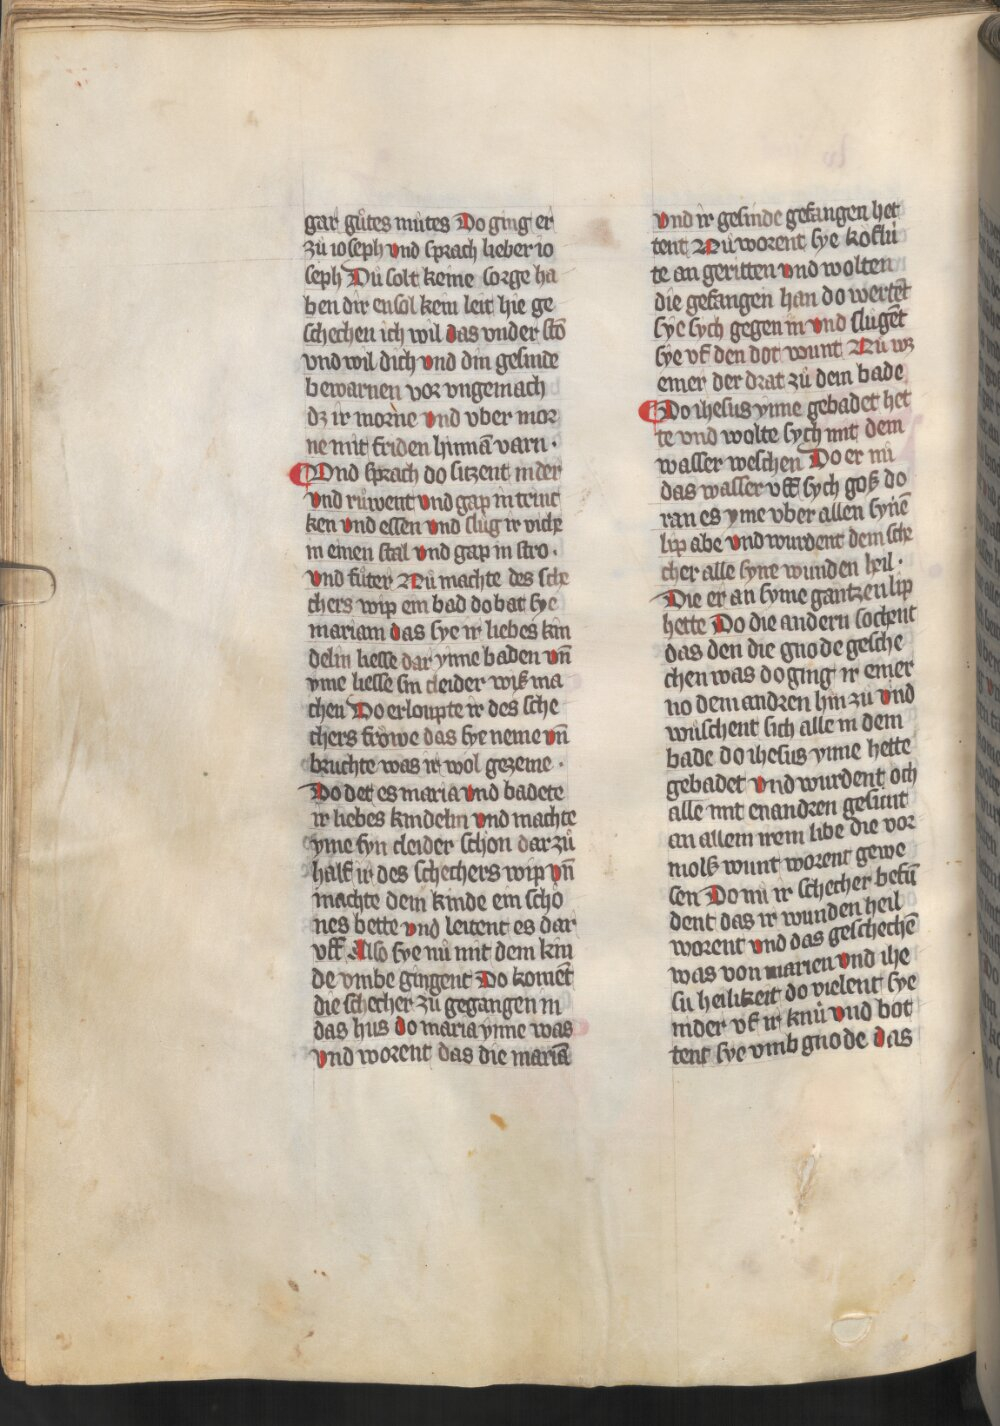 gar gůtes můtes Do ging er
zů ioseph vnd sprach lieber io
seph Du solt keine sorge ha
ben dir ensol kein leit hie ge
schechen ich wil das vnder sto
vnd wil dich vnd din gesinde
bewarnen vor vngemach
dz ir morne vnd vber mor
ne mit friden hinnā varn ·
Vnd sprach do sitzent nider
vnd růwent vnd gap in trinc
ken vnd essen vnd slůg ir viche
in einen stal vnd gap in stro ·
vnd fůter Nů machte des sche
chers wip ein bad do bat sye
mariam das sye ir liebes kin
delin liesse dar ynne baden vn̄
yme liesse sin cleider wiß ma
chen Do erloupte ir des sche
chers frowe das sye neme vn̄
bruchte was ir wol gezeme ·
Do det es maria vnd badete
ir liebes kindelin vnd machte
yme syn cleider schon dar zů
half ir des schechers wip vn̄
machte dem kinde ein schö
nes bette vnd leitent es dar
vff Also sye nů mit dem kin
de vmbe gingent Do komēt
die schecher zů gegangen in
das hus do maria ynne was
vnd worent das die mariā
vnd ir gesinde gefangen het
tent Nů worent sye koflů
te an geritten vnd wolten
die gefangen han do wertēt
sye sych gegen in vnd slůgēt
sye vf den dot wunt Nů wz
einer der drat zů dem bade
Do ihesus ynne gebadet het
te vnd wolte sych mit dem
wasser weschen Do er nů
das wasser vff sych goß do
ran es yme vber allen synē
lip abe vnd wurdent dem sche
cher alle syne wunden heil ·
Die er an syme gantzen lip
hette Do die andern sochent
das den die gnode gesche
chen was do ging ir einer
no dem andren hin zů vnd
wůschent sich alle in dem
bade do ihesus ynne hette
gebadet vnd wurdent öch
alle mit enandren gesunt
an allem irem libe die vor
mols wunt worent gewe
sen Do nů ir schecher befū
dent das ir wunden heil
worent vnd das geschechē
was von marien vnd ihe
su heilikeit do vielent sye
nider vf ir knů vnd bot
tent sye vmb gnode das